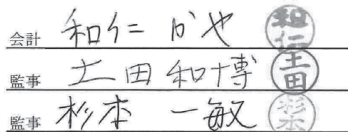 会計 和仁 かや 和仁
監事 土田 和博 土田
監事 杉本 一敏 杉本